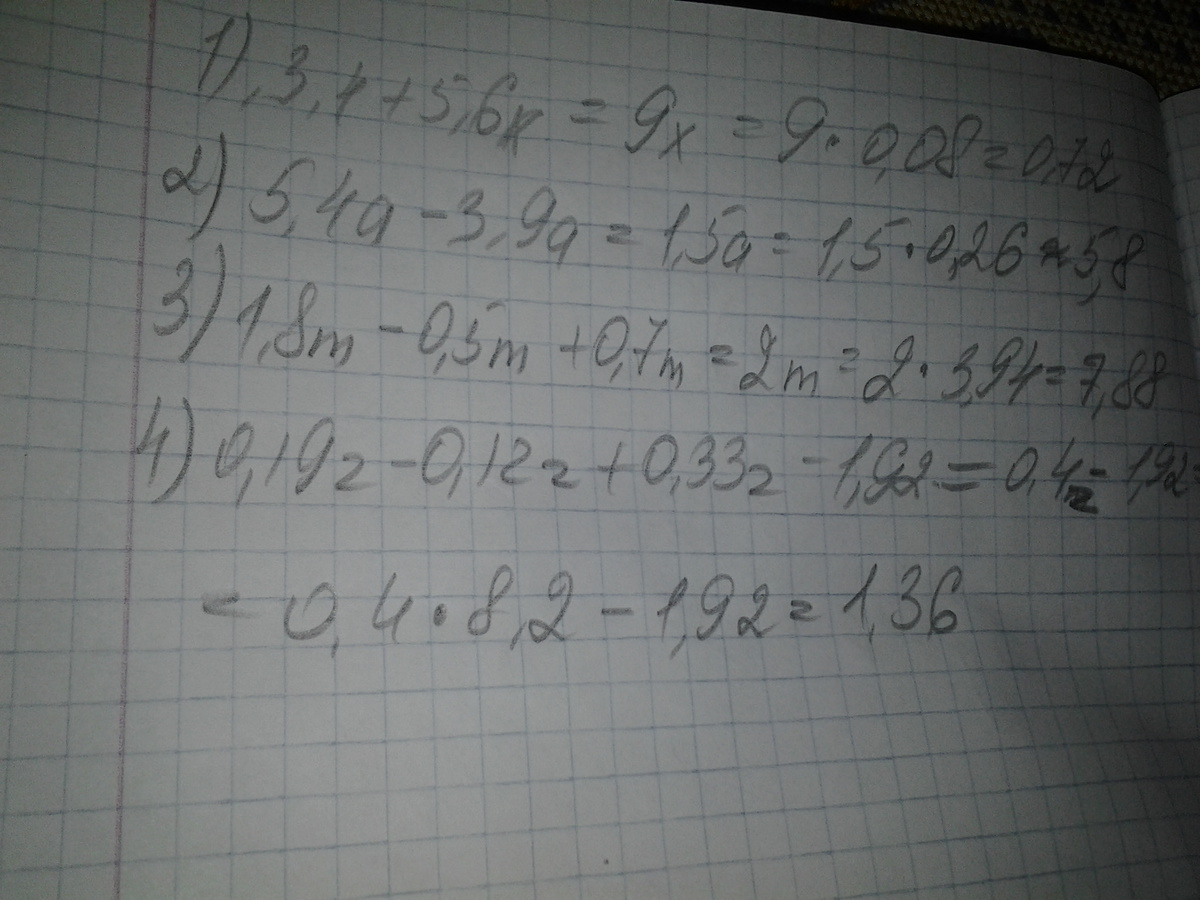 1) 3,4+5,6x = 9x = 9·0,08=0,72
2) 5,4a-3,9a=1,5a=1,5·0,26=5,8
3) 1,8m-0,5m+0,7m=2m=2·3,94=7,88
4) 0,19z-0,12z+0,33z-1,92=0,4z-1,92=
=0,4·8,2-1,92=1,36